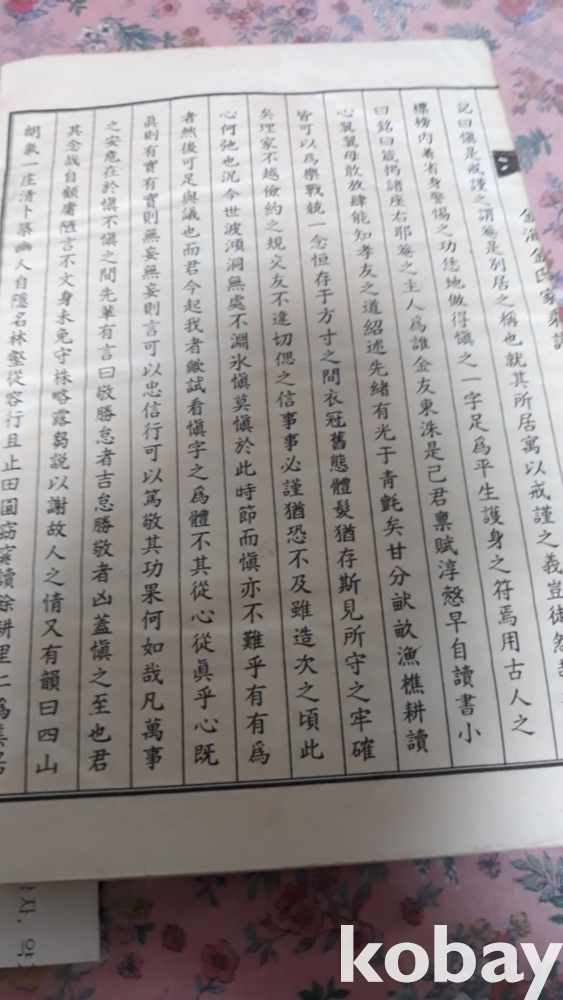 金海金氏家乘譜
記曰愼是戒謹之謂菴是別居之稱也就其所居寓以戒謹之義豈徒然哉
標榜內着省身警惕之功恁地做得愼之一字足爲平生護身之符焉用古人之
曰銘曰箴揭諸座右耶菴之主人爲誰金友東洙是已君稟賦淳慤早自讀書小
心翼翼毋敢放肆能知孝友之道紹述先緒有光于靑氈矣甘分畎畝漁樵耕讀
皆可以爲樂戰兢一念恒存于方寸之間衣冠舊態體髮猶存斯見所守之牢確
矣理家不越儉約之規交友不違切偲之信事事必謹猶恐不及雖造次之頃此
心何弛也况今世波澒洞無處不淵氷愼莫愼於此時節而愼亦不難乎有有爲
者然後可足與議也而君今起我者歟試看愼字之爲體不其從心從眞乎心旣
眞則有實有實則無妄無妄則言可以忠信行可以篤敬其功果何如哉凡萬事
之安危在於愼不愼之間先輩有言曰敬勝怠者吉怠勝敬者凶蓋愼之至也君
其念哉自顧膚陋言不文身未免守株略露芻說以謝故人之情又有韻曰四山
朝氣一庄淸卜築幽人自隱名林壑從容行且止田園窈窕讀餘耕里仁爲美居
자, 약
kobay